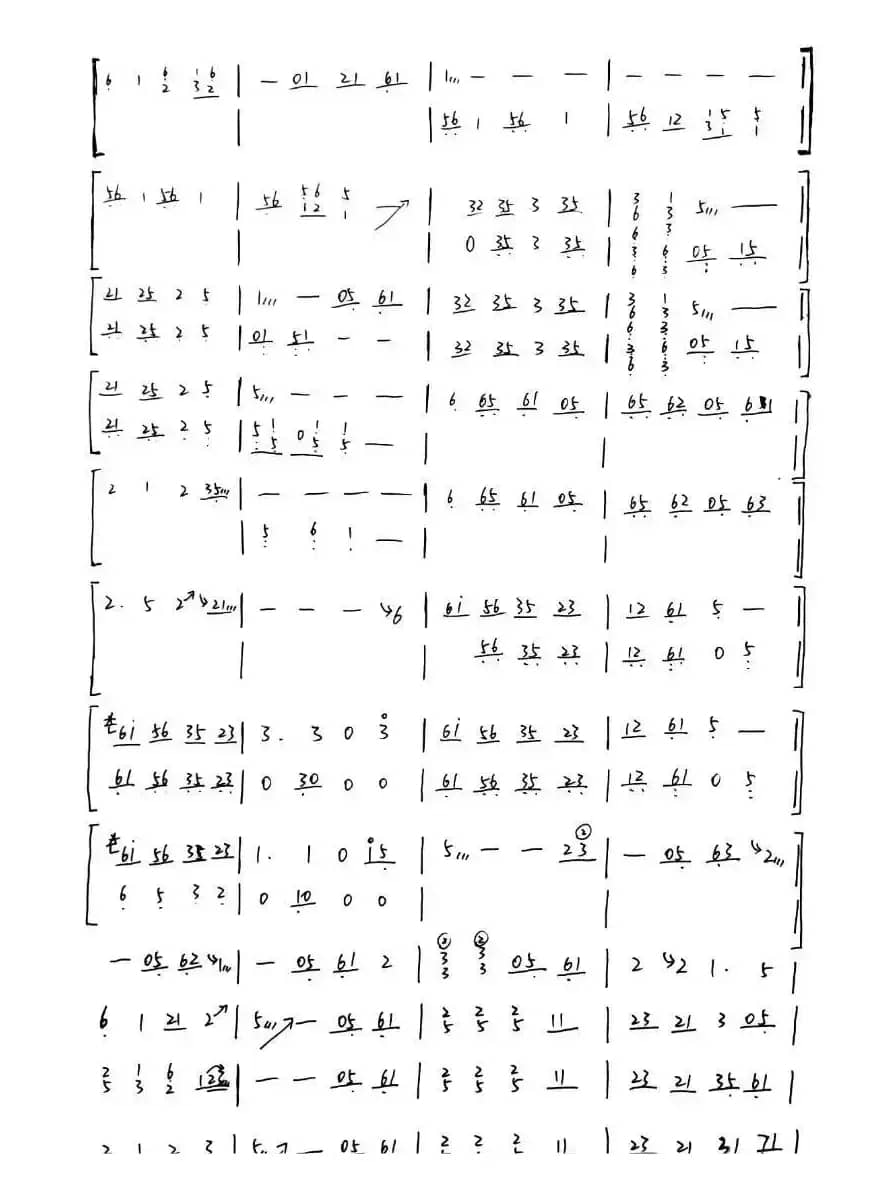 6 1 6 16 | — 01 21 61 | 1,,, — — — | — — — —
2 32
56 1 56 1 | 56 12 15 5
31 1
56 1 56 1 | 56 56 5 | 32 35 3 35 | 3 1 5,,, —
12 1 6 3
0 35 3 35 | 6 3
3 6 05 15
6 3
21 25 2 5 | 1,,, — 05 61 | 32 35 3 35 | 3 1 5,,, —
6 3
21 25 2 5 | 01 51 — — | 32 35 3 35 | 6 3
3 6 05 15
6 3
21 25 2 5 | 5,,, — — — | 6 65 61 05 | 65 62 05 6 1
21 25 2 5 | 51 01 1 —
5 5 5
2 1 2 35,,, | — — — — | 6 65 61 05 | 65 62 05 63
5 6 1 —
2. 5 2↗ ↘21,,, | — — — ↘6 | 6i 56 35 23 | 12 61 5 —
56 35 23 | 12 61 0 5
6i 56 35 23 | 3. 3 0 3 | 6i 56 35 23 | 12 61 5 —
61 56 35 23 | 0 30 0 0 | 61 56 35 23 | 12 61 0 5
6i 56 35 23 | 1. 1 0 i5 | 5,,, — — 23 | — 05 63 ↘2,,,
6 5 3 2 | 0 10 0 0
— 05 62 ↘1,,, | — 05 61 2 | 3 3 05 61 | 2 ↘2 1. 5
3 3
6 1 21 2↗ | 5,,, ↗ — 05 61 | 2 2 2 11 | 23 21 3 05
5 5 5
2 1 6 123 | — — 05 61 | 2 2 2 11 | 23 21 35 61
5 3 2 5 5 5
2 1 2 3 | 5,, ↗ — 05 61 | 2 2 2 11 | 23 21 31 71